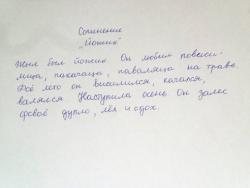 Сочинение
"Йожик"
Жил был йожик Он любил повеси-
лица, пакачаца, паваляца на траве.
Всё лето он висилился, качался,
валялся Наступила осень. Он залес
фсваё дупло, лёг и сдох.